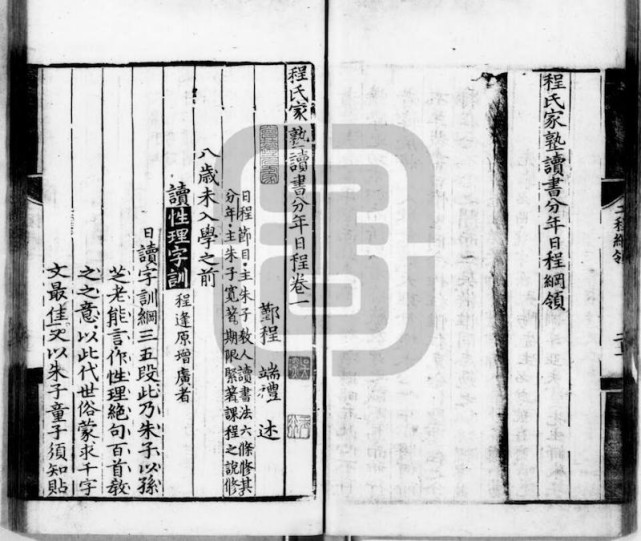 程氏家塾讀書分年日程綱領
程氏家塾讀書分年日程卷一
鄞程 端禮 述
日程節目主朱子敎人讀書法六條修其
分年主朱子寬著期限緊著課程之說修
八歲未入學之前
讀性理字訓 程逢原增廣者
日讀字訓綱三五段此乃朱子以孫
芝老能言作性理絶句百首敎
之之意以此代世俗蒙求千字
文最佳又以朱子童子須知貼